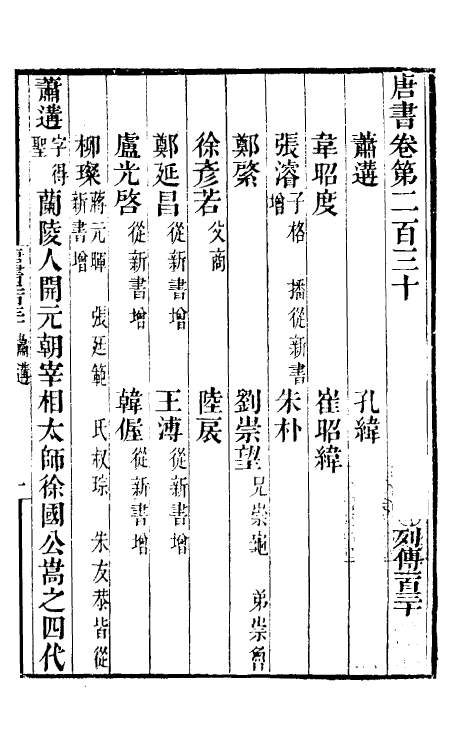 唐書卷第二百三十　列傳一百三十
蕭遘　孔緯
韋昭度　崔昭緯
張濬子格　播從新書增　朱朴
鄭綮　劉崇望兄崇龜　弟崇魯
徐彥若父商　陸扆
鄭延昌從新書增　王溥從新書增
盧光啓從新書增　韓偓從新書增
柳璨蔣元暉　張廷範　氏叔琮　朱友恭皆從新書增
蕭遘字得聖蘭陵人開元朝宰相太師徐國公嵩之四代
蕭遘
一